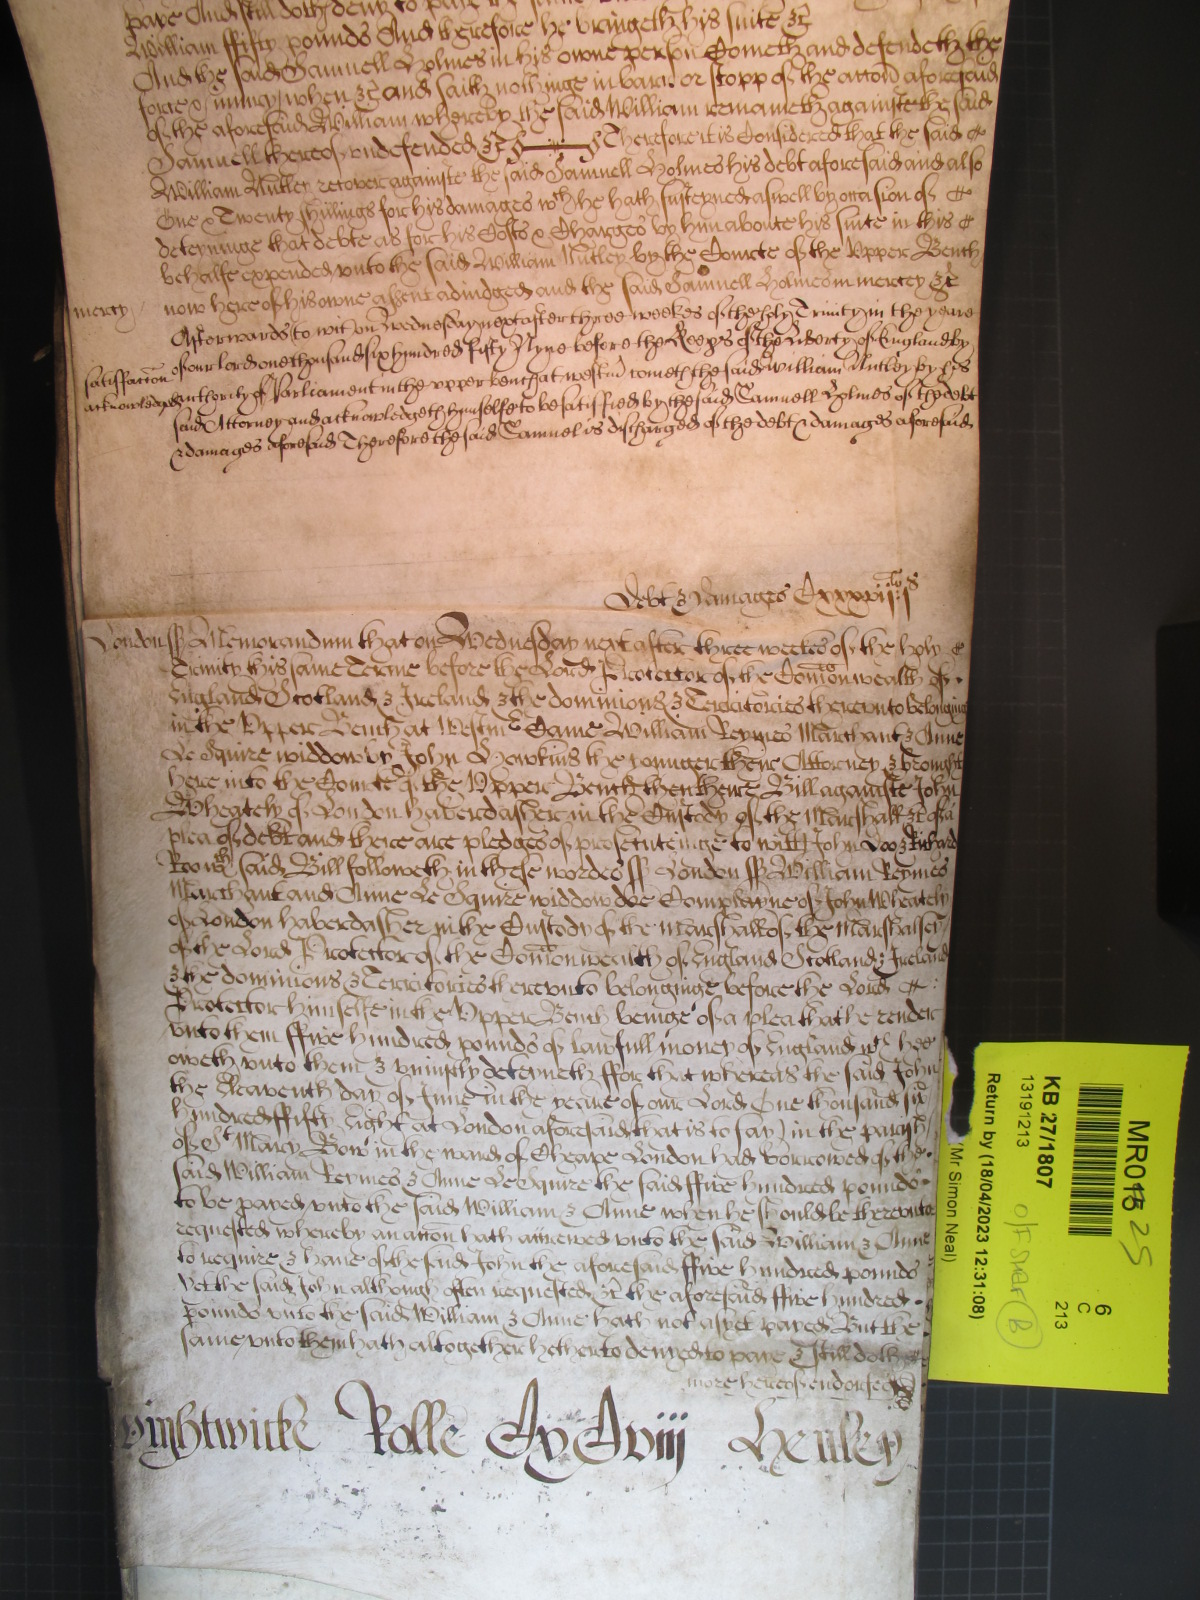 paye And still doth deny to paye
William ffifty pounds And therefore he bringeth his suite &c
And the said Samuell Holmes in his owne person Cometh and defendeth the
force & iniury when &c and saith nothinge in barr or stopp of the accon aforesaid
of the aforesaid William whereby the said William remaineth againste the said
Samuell thereof undefended &c Therefore it is Considered that the said
William Nutley recover againste the said Samuell Holmes his debt aforesaid and also
One & Twenty shillings for his damages wch he hath susteyned aswell by occasion of
deteyninge that debte as for his Costs & Charges by him aboute his suite in this
behalfe expended unto the said William Nutley by the Courte of the Upper Bench
now here of his owne assent adiudged and the said Samuell Holmes in mercy &c
mercy
Afterwards to wit on Wednesday next after three weekes of the holy Trinity in the yeare
of our lord one thousand six hundred fifty Nyne before the Keeps of the liberty of England by
satisfaccon
acknowledged
authority of Parliament in the upper bench at westm cometh the said William Nutley by his
said Attorney and acknowledgeth himselfe to be satisfied by the said Samuell Holmes of the debt
& damages aforesaid Therefore the said Samuel is discharged of the debt & damages aforesaid
Debt & Damages
London ss Memorandum that on Wednesday next after three weekes of the holy
Trinity this same Terme before the Lord Protector of the Comonwealth of
England Scotland & Ireland & the dominions & Territories thereunto belonging
in the Upper Bench at Westmr Came William Reymes Marchant & Anne
Le Squire widdow by John Hawkins the younger there Attorney & brought
here into the Courte of the Upper Bench then there Bill againste John
Wheately of London haberdasher in the Custody of the Marshall &c of a
plea of debt and there are pledges of prosecuteinge to witt John Doo & Richard
Roo wch said Bill followeth in these wordes ss London ss William Reymes
Marchant and Anne Le Squire widdow doe Complayne of John Wheately
of London haberdasher in the Custody of the Marshall of the Marshalsey
of the Lord Protector of the Comonwealth of England Scotland & Ireland
& the dominions & Territories thereunto belonginge before the Lord
Protector himselfe in the Upper Bench beinge of a plea that he render
unto them ffive hundred pounds of lawfull money of England wch hee
oweth unto them & uniustly deteineth ffor that whereas the said John
the Eleaventh day of June in the yeare of our Lord One thousand six
hundred ffifty Eight at London aforesaid (that is to say) in the parish
of St Mary Bow in the ward of Cheape London had borrowed of the
said William Reymes & Anne Le Squire the said ffive hundred pounds
to be payed unto the said William & Anne when he should be thereunto
requested whereby an accon hath accrewed unto the said William & Anne
to require & have of the said John the aforesaid ffive hundred pounds
Yet the said John although often requested &c the aforesaid ffive hundred
pounds unto the said William & Anne hath not as yet payed But the
same unto them hath altogether hetherto denyed to pay & still doth
more hereof endorsed
Wightwicke Rolle Henley
MR015 25
6
C
213
KB 27/1807
13191213
off shelf (B)
Return by (18/04/2023 12:31:08)
Mr Simon Neal)